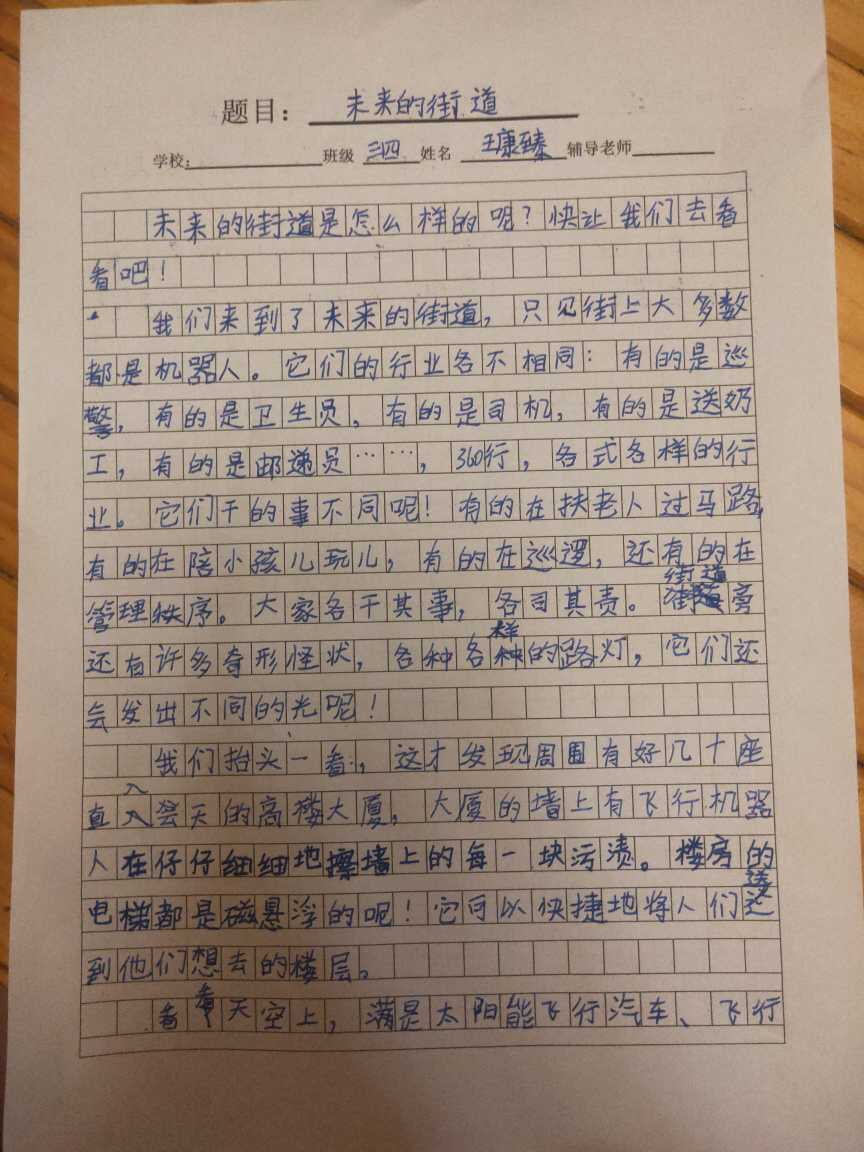 题目：未来的街道
学校：班级 三四 姓名 王康臻 辅导老师
未来的街道是怎么样的呢？快让我们去看
看吧！
我们来到了未来的街道，只见街上大多数
都是机器人。它们的行业各不相同：有的是巡
警，有的是卫生员，有的是司机，有的是送奶
工，有的是邮递员……，360行，各式各样的行
业。它们干的事不同呢！有的在扶老人过马路，
有的在陪小孩儿玩儿，有的在巡逻，还有的在
管理秩序。大家各干其事，各司其责。街道旁
还有许多奇形怪状，各种各样的路灯，它们还
会发出不同的光呢！
我们抬头一看，这才发现周围有好几十座
直入云天的高楼大厦，大厦的墙上有飞行机器
人在仔仔细细地擦墙上的每一块污渍。楼房的
电梯都是磁悬浮的呢！它可以快捷地将人们送
到他们想去的楼层。
看看天空上，满是太阳能飞行汽车、飞行